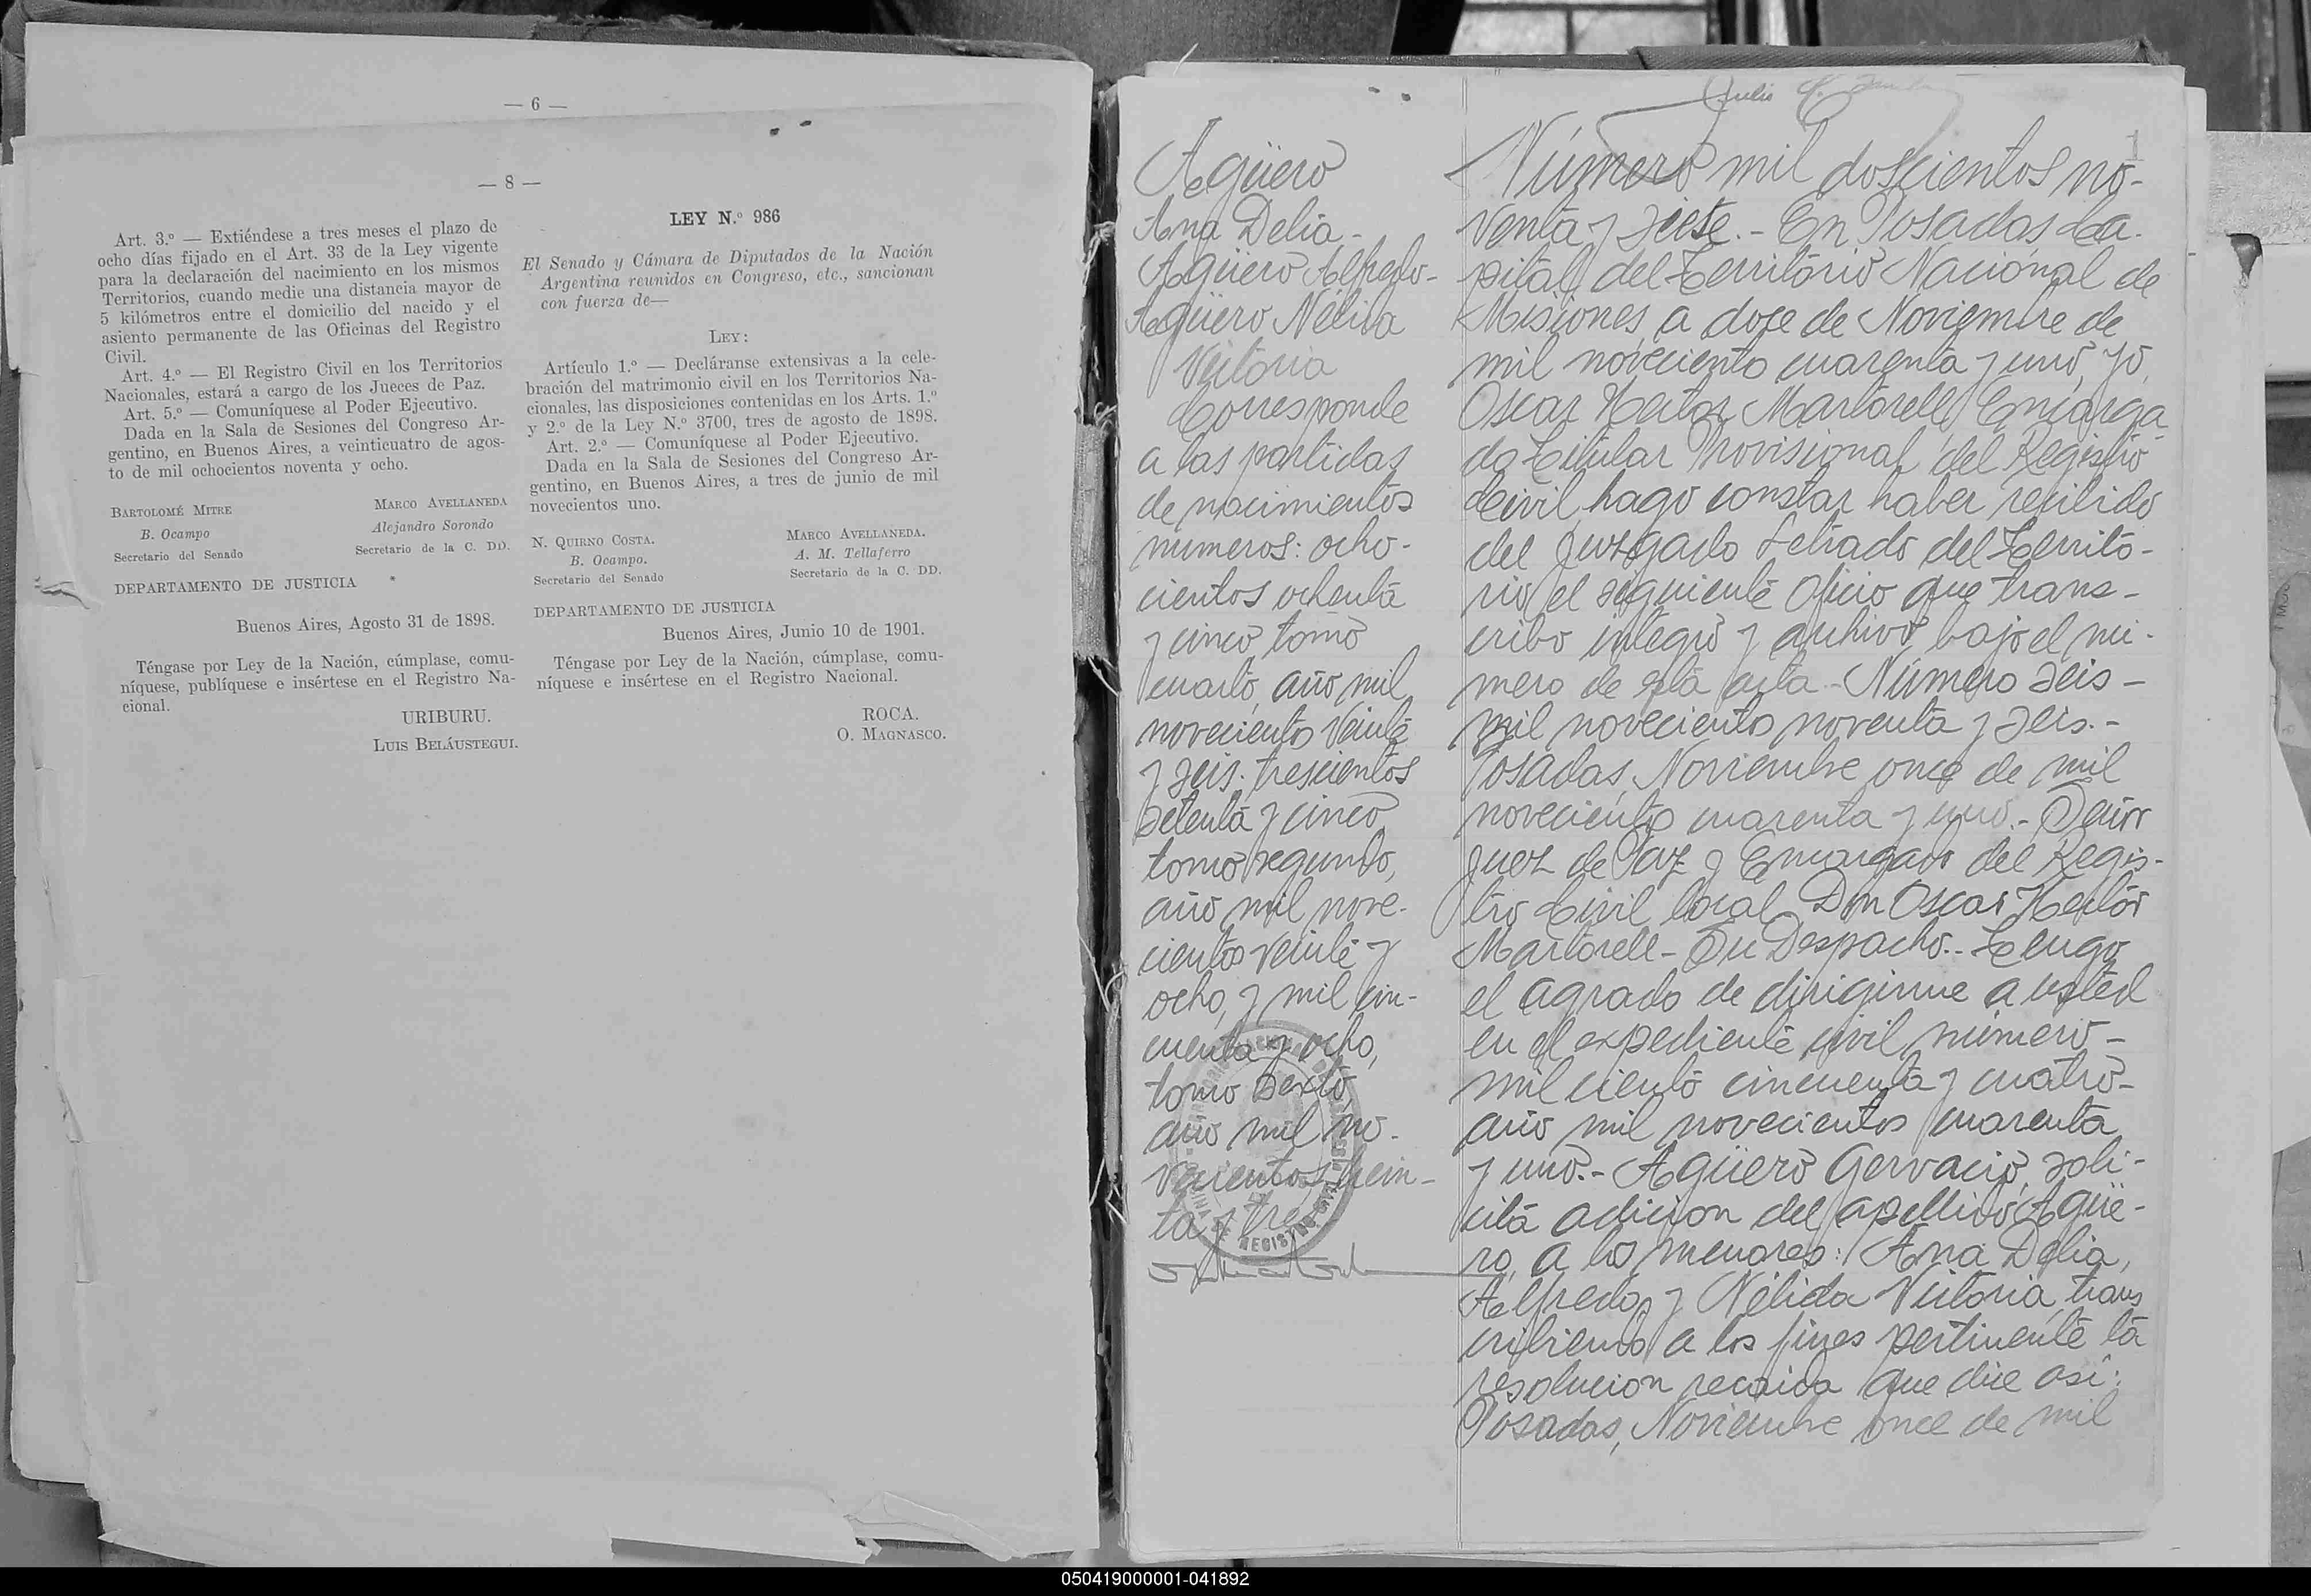 — 6 —
— 8 —
Art. 3.º — Extiéndese a tres meses el plazo de
ocho días fijado en el Art. 33 de la Ley vigente
para la declaración del nacimiento en los mismos
Territorios, cuando medie una distancia mayor de
5 kilómetros entre el domicilio del nacido y el
asiento permanente de las Oficinas del Registro
Civil.
Art. 4.º — El Registro Civil en los Territorios
Nacionales, estará a cargo de los Jueces de Paz.
Art. 5.º — Comuníquese al Poder Ejecutivo.
Dada en la Sala de Sesiones del Congreso Ar-
gentino, en Buenos Aires, a veinticuatro de agos-
to de mil ochocientos noventa y ocho.
BARTOLOMÉ MITRE MARCO AVELLANEDA
B. Ocampo Alejandro Sorondo
Secretario del Senado Secretario de la C. DD.
DEPARTAMENTO DE JUSTICIA
Buenos Aires, Agosto 31 de 1898.
Téngase por Ley de la Nación, cúmplase, comu-
níquese, publíquese e insértese en el Registro Na-
cional.
URIBURU.
LUIS BELÁUSTEGUI.
LEY N.º 986
El Senado y Cámara de Diputados de la Nación
Argentina reunidos en Congreso, etc., sancionan
con fuerza de—
LEY:
Artículo 1.º — Decláranse extensivas a la cele-
bración del matrimonio civil en los Territorios Na-
cionales, las disposiciones contenidas en los Arts. 1.º
y 2.º de la Ley N.º 3700, tres de agosto de 1898.
Art. 2.º — Comuníquese al Poder Ejecutivo.
Dada en la Sala de Sesiones del Congreso Ar-
gentino, en Buenos Aires, a tres de junio de mil
novecientos uno.
N. QUIRNO COSTA. MARCO AVELLANEDA.
B. Ocampo. A. M. Tellaferro
Secretario del Senado Secretario de la C. DD.
DEPARTAMENTO DE JUSTICIA
Buenos Aires, Junio 10 de 1901.
Téngase por Ley de la Nación, cúmplase, comu-
níquese e insértese en el Registro Nacional.
ROCA.
O. MAGNASCO.
Agüero
Ana Delia -
Agüero Alfredo -
Agüero Nélida
Victoria
Corresponde
a las partidas
de nacimientos
numeros: ocho-
cientos ochenta
y cinco, tomo
cuarto, año mil
noveciento veinte
y seis. trescientos
setenta y cinco
tomo segundo,
año mil nove-
cientos veinte y
ocho, y mil cin-
cuenta y ocho,
tomo sexto,
año mil no-
vecientos trein-
ta y tres
Julio
1
Número mil doscientos no-
venta y siete. - En Posadas Ca-
pital del Territorio Nacional de
Misiones, a doce de Noviembre de
mil noveciento cuarenta y uno, yo,
Oscar Hector Martorell, Encarga
do Titular Provisional del Registro
Civil, hago constar haber recibido
del Juzgado Letrado del Territo-
rio, el siguiente oficio que trans-
cribo integro y archivo bajo el nú-
mero de esta acta - Número seis -
mil noveciento noventa y seis. -
Posadas, Noviembre once de mil
noveciento cuarenta y uno. - Señor
Juez de Paz y Encargado del Regis-
tro Civil local Don Oscar Hector
Martorell - Su Despacho. - Tengo
el agrado de dirigirme a usted
en el expediente civil número -
mil ciento cincuenta y cuatro -
año mil novecientos cuarenta
y uno. - Agüero Gervacio, soli-
cita adicion del apellido Agüe-
ro, a los menores: Ana Delia,
Alfredo, y Nélida Victoria, trans
cribiendo a los fines pertinente la
resolucion recaida que dice asi:
Posadas, Noviembre once de mil
050419000001-041892